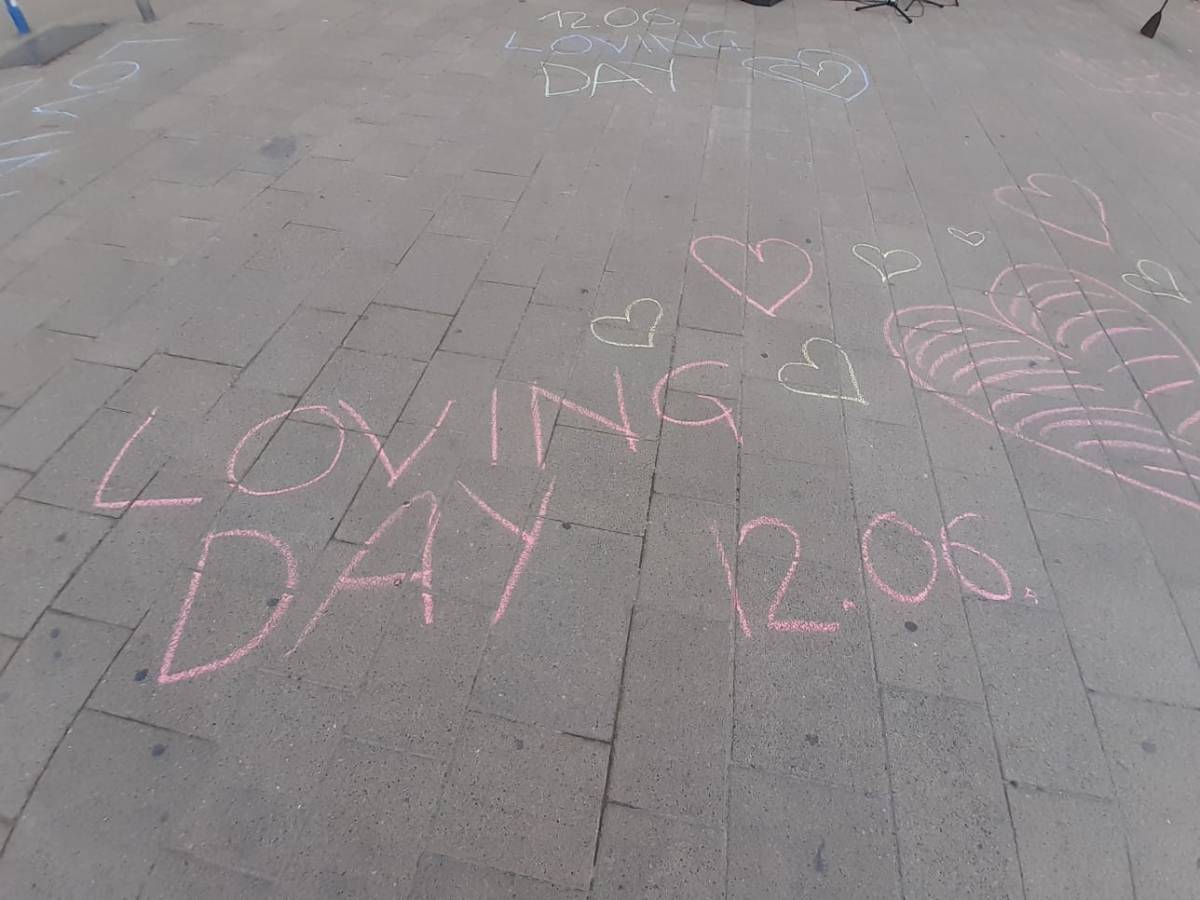 12.06.
LOVING
DAY
LOVING
DAY 12.06.